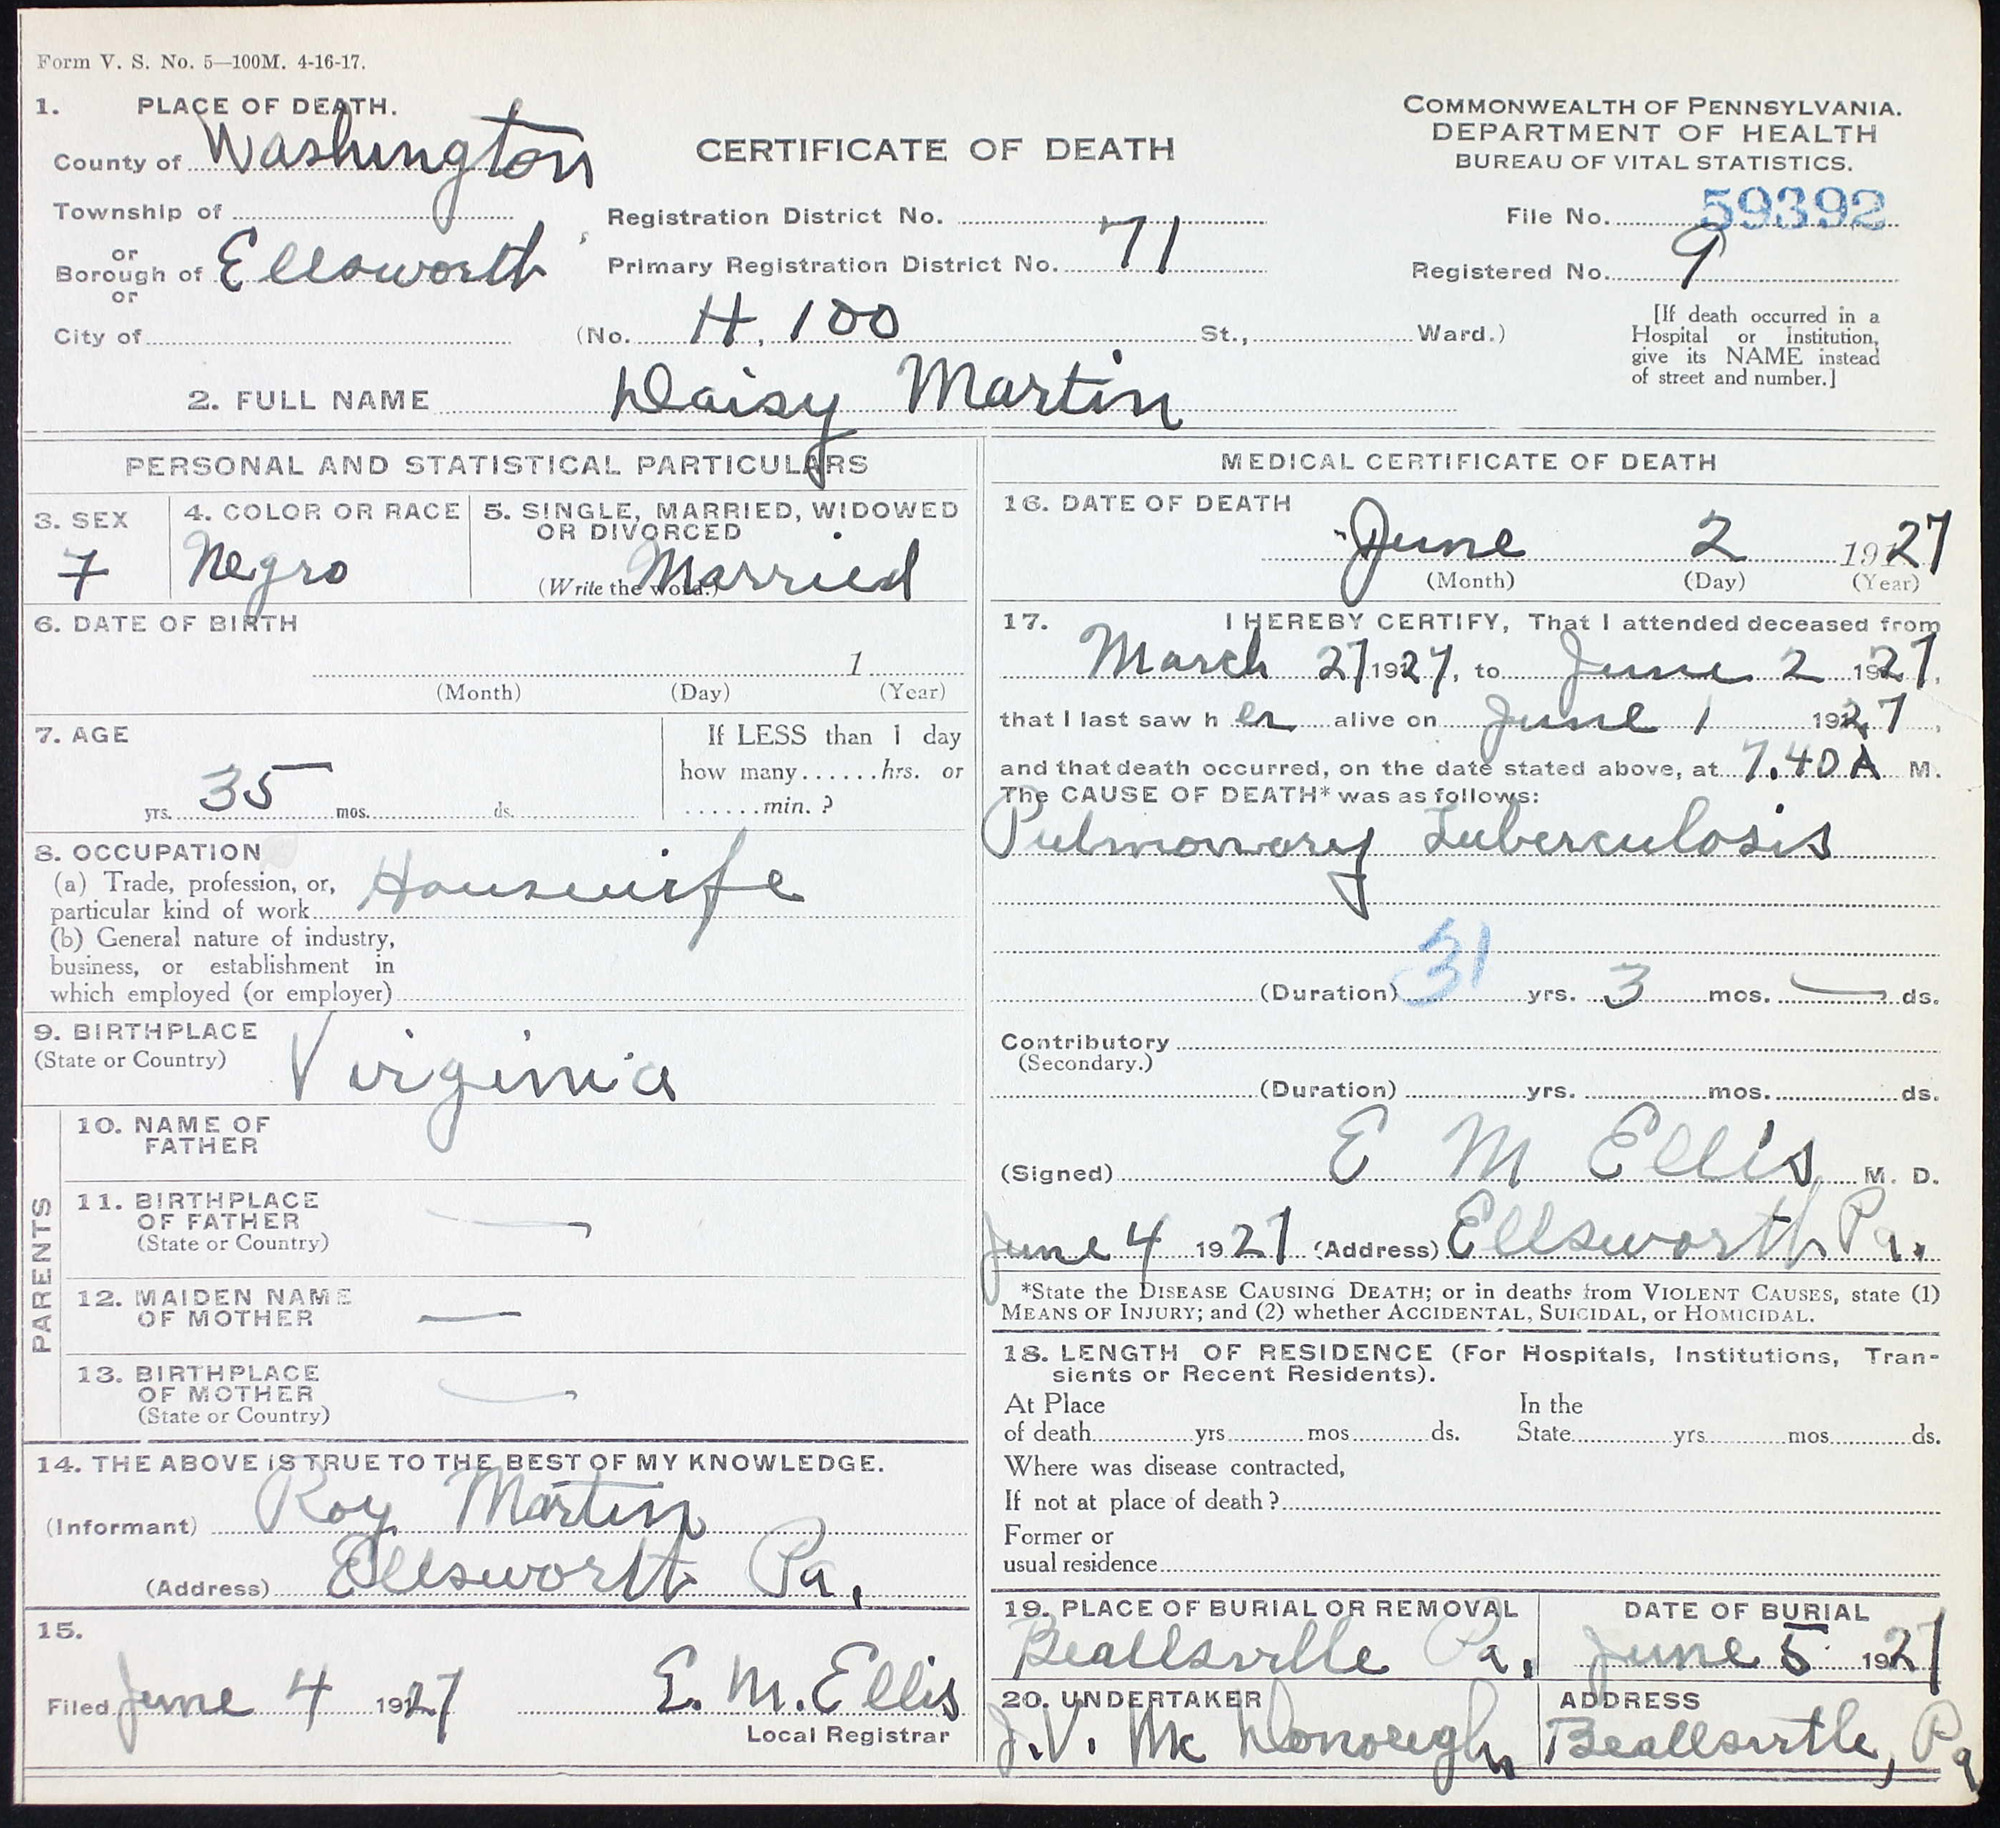 Form V. S. No. 5—100M. 4-16-17.
1. PLACE OF DEATH.
County of Washington
Township of
or
Borough of Ellsworth
or
City of
CERTIFICATE OF DEATH
Registration District No.
Primary Registration District No. 71
(No. H, 100 St., Ward.)
COMMONWEALTH OF PENNSYLVANIA.
DEPARTMENT OF HEALTH
BUREAU OF VITAL STATISTICS.
File No. 59392
Registered No. 9
[If death occurred in a
Hospital or Institution,
give its NAME instead
of street and number.]
2. FULL NAME Daisy Martin
PERSONAL AND STATISTICAL PARTICULARS
3. SEX
F
4. COLOR OR RACE
Negro
5. SINGLE, MARRIED, WIDOWED
OR DIVORCED
(Write the word.) Married
6. DATE OF BIRTH
1
(Month) (Day) (Year)
7. AGE
35
yrs. mos. ds.
If LESS than 1 day
how many......hrs. or
......min.?
8. OCCUPATION
(a) Trade, profession, or,
particular kind of work Housewife
(b) General nature of industry,
business, or establishment in
which employed (or employer)
9. BIRTHPLACE
(State or Country) Virginia
PARENTS
10. NAME OF
FATHER
11. BIRTHPLACE
OF FATHER
(State or Country)
12. MAIDEN NAME
OF MOTHER
13. BIRTHPLACE
OF MOTHER
(State or Country)
14. THE ABOVE IS TRUE TO THE BEST OF MY KNOWLEDGE.
(Informant) Roy Martin
(Address) Ellsworth Pa.
15.
Filed June 4 1927 E. M. Ellis
Local Registrar
MEDICAL CERTIFICATE OF DEATH
16. DATE OF DEATH
June 2 1927
(Month) (Day) (Year)
17. I HEREBY CERTIFY, That I attended deceased from
March 27 1927, to June 2 1927,
that I last saw h er alive on June 1 1927,
and that death occurred, on the date stated above, at 7.40 A M.
The CAUSE OF DEATH* was as follows:
Pulmonary Tuberculosis
31
(Duration) yrs. 3 mos. — ds.
Contributory
(Secondary.)
(Duration) yrs. mos. ds.
(Signed) E M Ellis M. D.
June 4 1927 (Address) Ellsworth Pa.
*State the DISEASE CAUSING DEATH; or in deaths from VIOLENT CAUSES, state (1)
MEANS OF INJURY; and (2) whether ACCIDENTAL, SUICIDAL, or HOMICIDAL.
18. LENGTH OF RESIDENCE (For Hospitals, Institutions, Tran-
sients or Recent Residents).
At Place In the
of death yrs mos ds. State yrs mos ds.
Where was disease contracted,
If not at place of death?
Former or
usual residence
19. PLACE OF BURIAL OR REMOVAL
Beallsville Pa.
DATE OF BURIAL
June 5 1927
20. UNDERTAKER
J. V. McDonough
ADDRESS
Beallsville, Pa